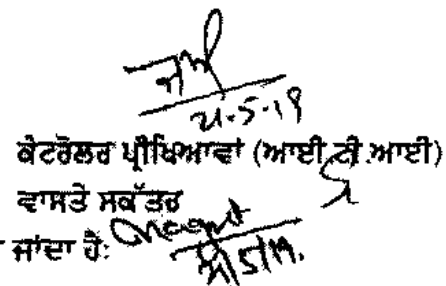 21-5-19
ਕੰਟਰੋਲਰ ਪ੍ਰੀਖਿਆਵਾਂ (ਆਈ.ਟੀ.ਆਈ)
ਵਾਸਤੇ ਸਕੱਤਰ
ਜਾਂਦਾ ਹੈ: